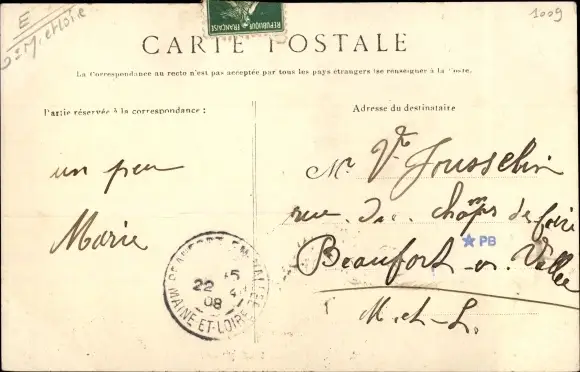 E
Met Loire
1009
REPUBLIQUE FRANÇAISE
CARTE POSTALE
La Correspondance au recto n'est pas acceptée par tous les pays étrangers (se renseigner à la Poste.
Partie réservée à la correspondance :
un peu
Marie
Adresse du destinataire
Mr Vte Jousselin
rue du champs de foire
Beaufort-en-Vallée
M-et-L.
PB
BEAUFORT-EN-VALLEE
22
4
08
MAINE-ET-LOIRE